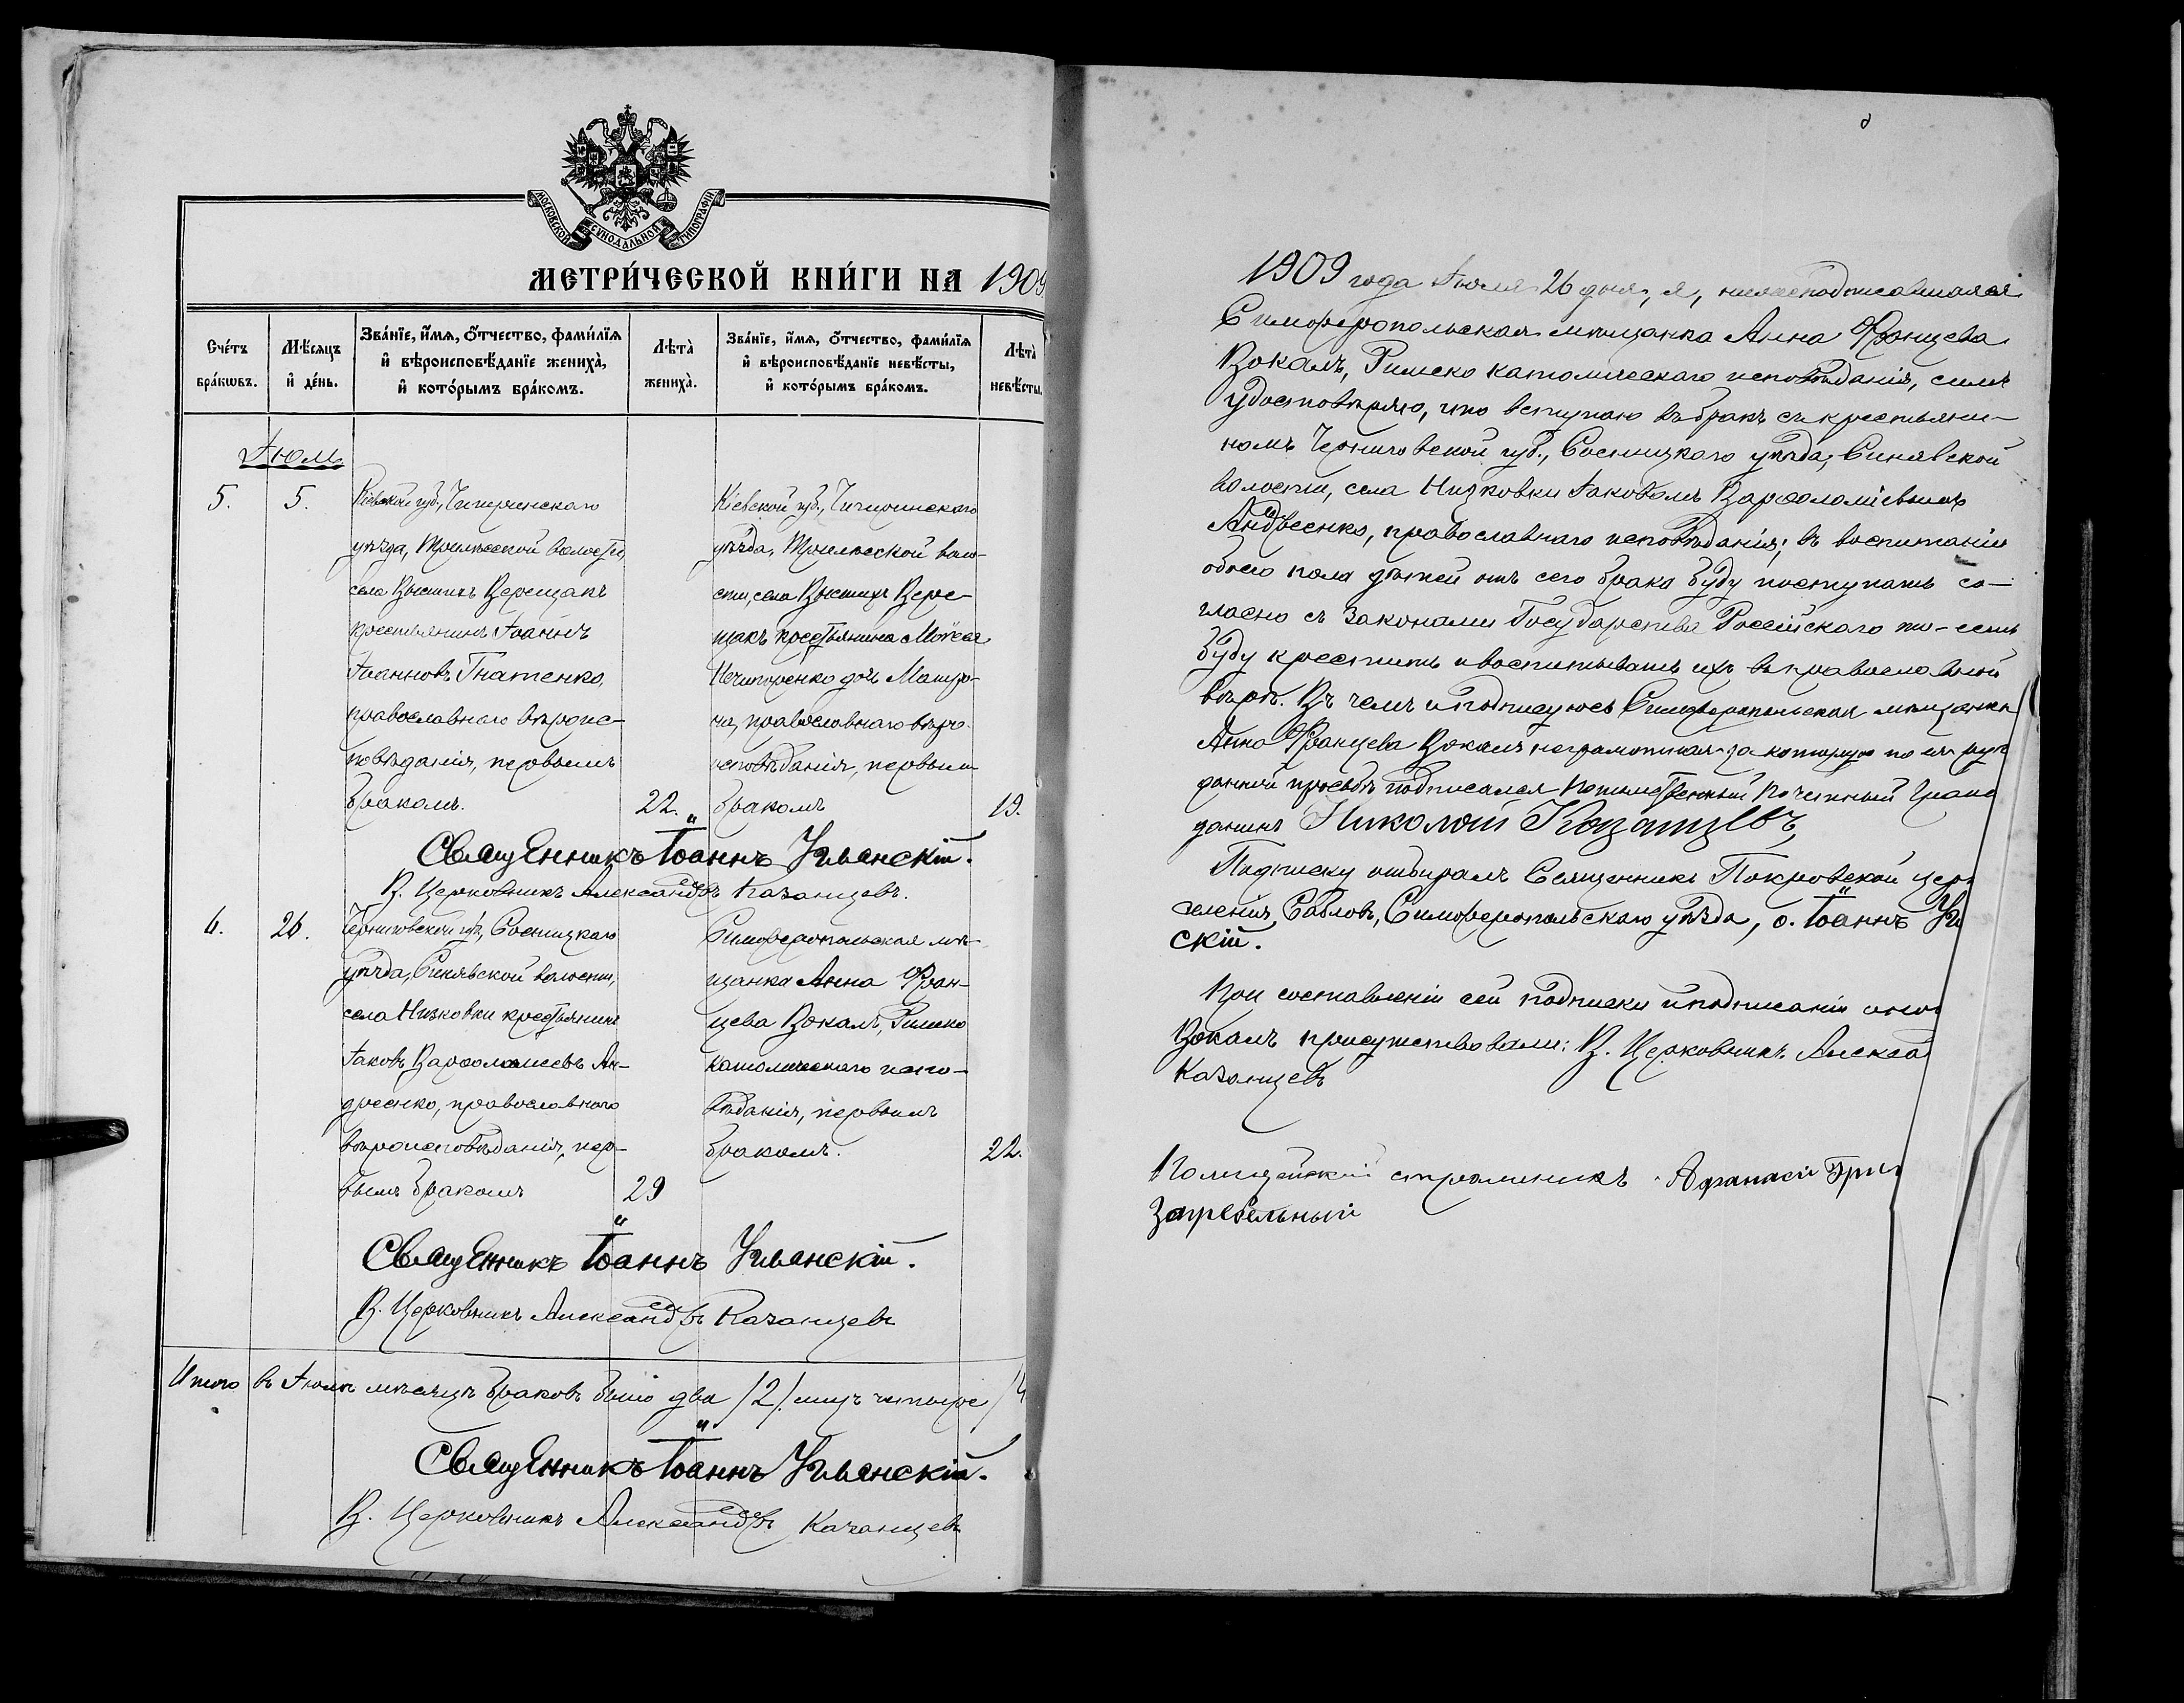 МОСКОВСКОЙ СѴНОДАЛЬНОЙ ТИПОГРАФІИ
МЕТРИ́ЧЕСКОЙ КНИ́ГИ НА 1909
Сче́тъ бра́кѡвъ.
Мѣ́сяцъ и҆ де́нь.
Зва́нїе, и҆́мѧ, ѻ҆́тчество, фами́лїѧ
и҆ вѣроисповѣ́данїе жениха̀,
и҆ кото́рымъ бра́комъ.
Лѣта̀ жениха̀.
Зва́нїе, и҆́мѧ, ѻ҆́тчество, фами́лїѧ
и҆ вѣроисповѣ́данїе невѣ́сты,
и҆ кото́рымъ бра́комъ.
Лѣта̀ невѣ́сты.
Іюль
5.
5.
Кіевской губ., Чигиринскаго
уѣзда, Трилѣсской волости,
села Высшихъ Верещакъ
крестьянинъ Іоаннъ
Іоанновъ Гнатенко,
православнаго вѣроис-
повѣданія, первымъ
бракомъ.
22.
Кіевской губ., Чигиринскаго
уѣзда, Трилѣсской воло-
сти, села Высшихъ Вере-
щакъ крестьянина Моисея
Нечипоренко дочь Матро-
на, православнаго вѣро-
исповѣданія, первымъ
бракомъ
19.
Священникъ Іоаннъ Углянскій.
В. Церковникъ Александръ Казанцевъ.
6.
26.
Черниговской губ., Сосницкаго
уѣзда, Синявской волости,
села Низковки крестьянинъ
Іаковъ Варѳоломіевъ Ан-
дреенко, православнаго
вѣроисповѣданія, пер-
вымъ бракомъ
29
Симферопольская мѣ-
щанка Анна Фран-
цева Вокалъ, Римско
католическаго испо-
вѣданія, первымъ
бракомъ.
22.
Священникъ Іоаннъ Углянскій.
В. Церковникъ Александръ Казанцевъ
Итого въ Іюлѣ мѣсяцѣ браковъ было два /2/. лицъ четыре /4
Священникъ Іоаннъ Углянскій.
В. Церковникъ Александръ Казанцевъ
1909 года Іюля 26 дня, я, нижеподписавшаяся
Симферопольская мѣщанка Анна Францева
Вокалъ, Римско католическаго исповѣданія, симъ
удостовѣряю, что вступаю въ бракъ съ крестьяни-
номъ Черниговской губ., Сосницкаго уѣзда, Синявской
волости, села Низковки Іаковомъ Варѳоломіевымъ
Андреенко, православнаго исповѣданія; въ воспитаніи
обоего пола дѣтей отъ сего брака буду поступать со-
гласно съ Законами Государства Россійскаго то-есть
буду крестить и воспитывать ихъ въ православной
вѣрѣ. Въ чемъ и подписуюсь Симферопольская мѣщанка
Анна Францева Вокалъ неграмотная за которую по ея
данной просьбѣ подписался Потомственный Почетный Граж
данинъ Николай Казанцевъ,
Подписку отбиралъ Священникъ Покровской цер
селенія, Сабловъ, Симферопольскаго уѣзда, о. Іоаннъ Уг
скій.
При составленіи сей подписки и подписаніи оной
Вокалъ присутствовали: В. Церковникъ Алексан
Казанцевъ
Полицейскій стражникъ Афанасій Гри
Загребельный